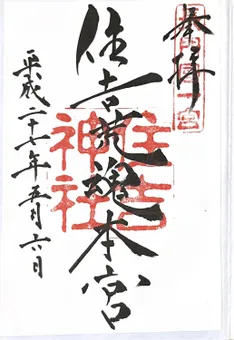 奉拝
住吉荒魂本宮
住吉神社
平成二十七年五月六日